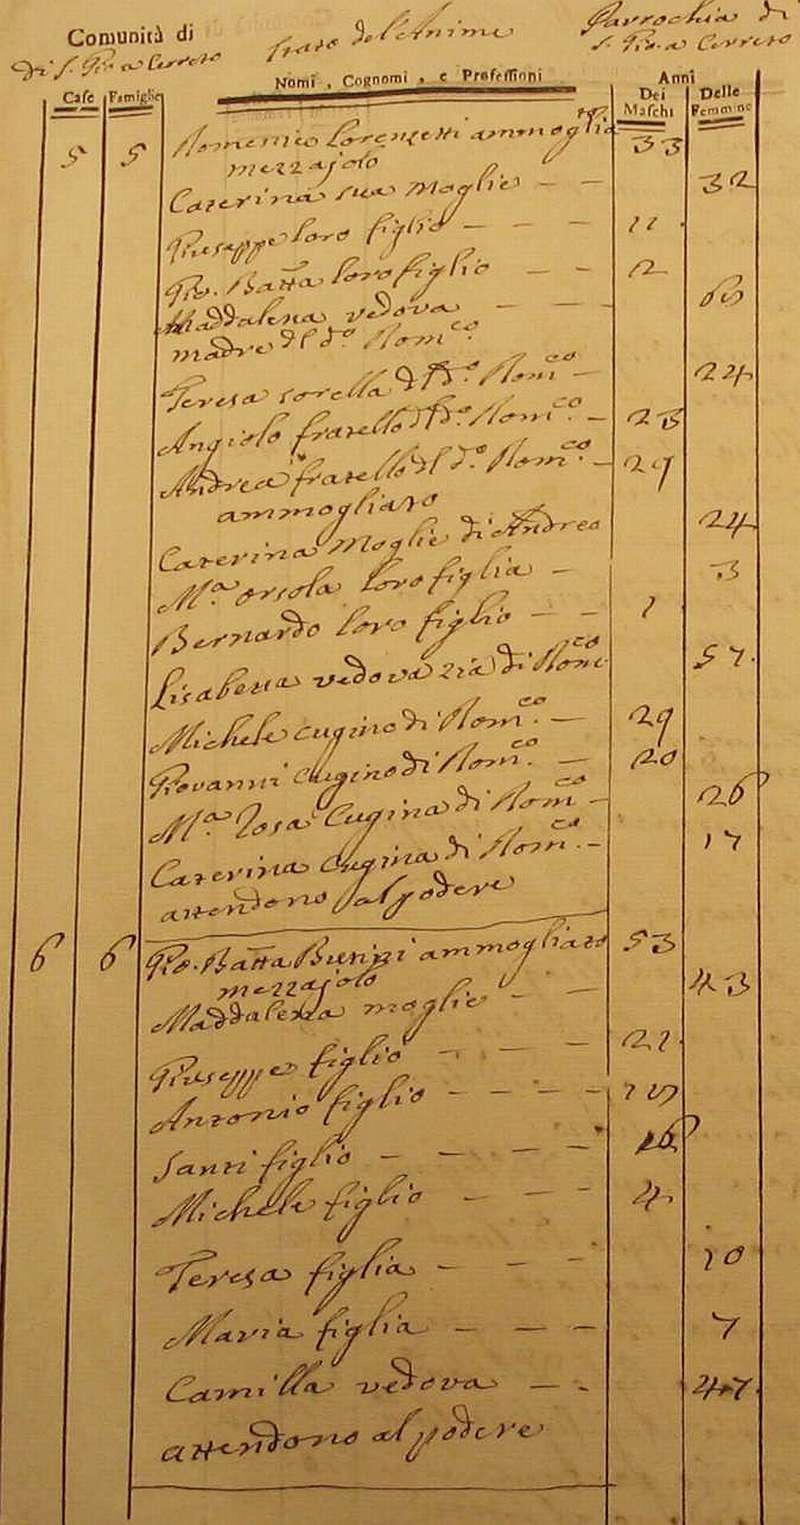 Comunità di
di S. Gio. a Cerreto
Stato del Anime
Parrochia di
S. Gio. a Cerreto
Case Famiglie Nomi, Cognomi, e Professioni Anni
Dei Maschi Delle Femmine
5 5 Domenico Lorenzetti ammogliato 33
mezzajolo
Caterina sua Moglie — — 32
Giuseppe loro figlio — — — 11
Gio. Batta loro figlio — — 2
Maddalena vedova — — —
madre del do. Domco.
Teresa sorella del do. Domco — 24
Angiolo fratello del do. Domco. — 23
Andrea fratello del do. Domco. — 29
ammogliato
Caterina Moglie di Andrea 24
Ma. Orsola loro figlia — 3
Bernardo loro figlio — — 1
Lisabetta vedova zia di Domco 57
Michele cugino di Domco. — 29
Giovanni Cugino di Domco. — 20
Ma. Rosa Cugina di Domco — 26
Caterina Cugina di Domco. — 17
attendono al podere
6 6 Gio. Batta Bunizi ammogliato 53
mezzajolo
Maddalena moglie — — 43
Giuseppe figlio — — — 21
Antonio figlio — — — — 15
Santi figlio — — — — 16
Michele figlio — — — 4
Teresa figlia — — — 10
Maria figlia — — — 7
Camilla vedova — — 47
attendono al podere